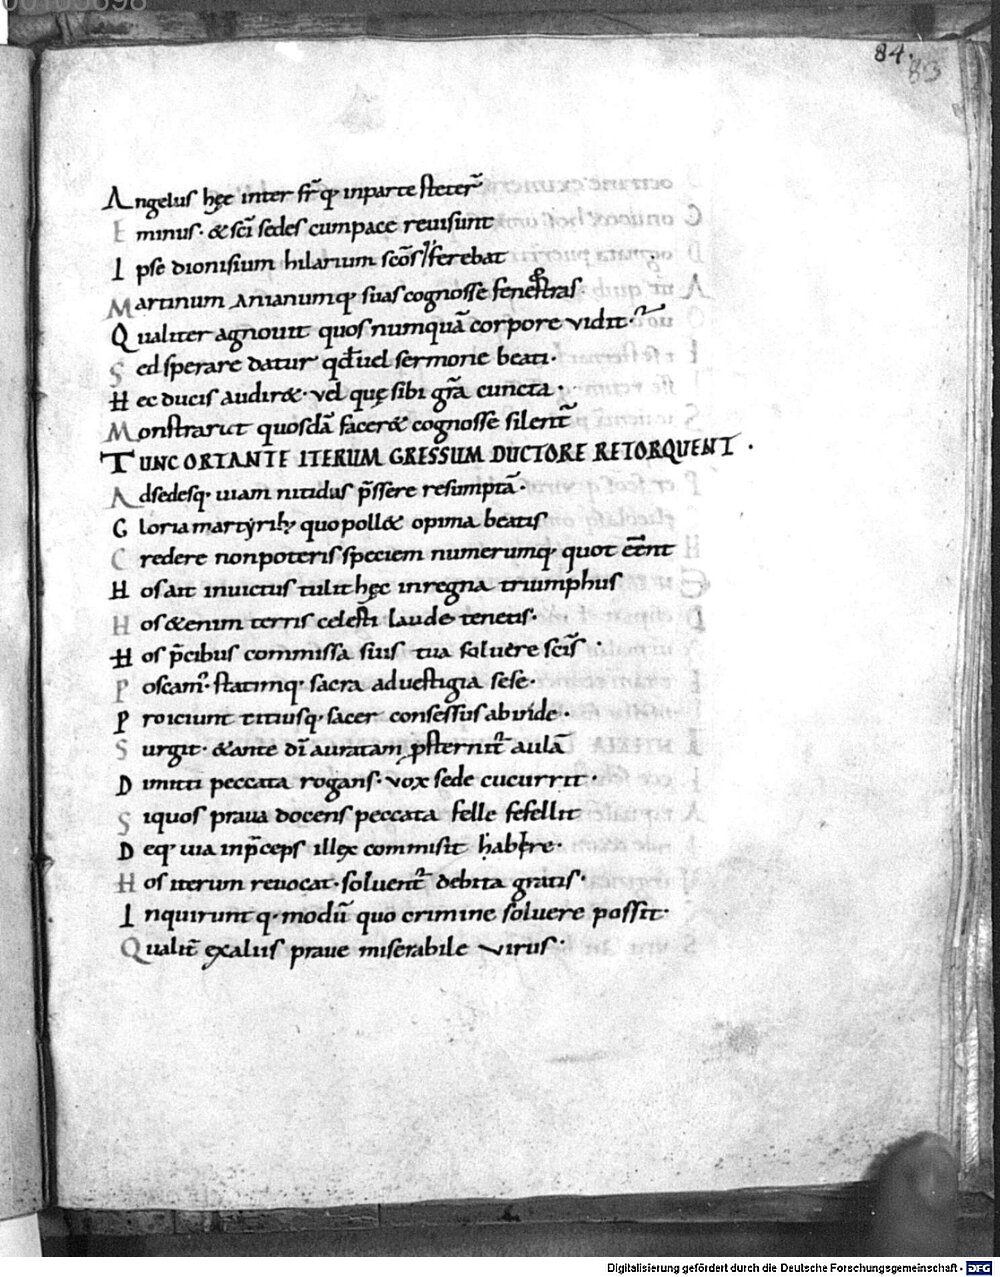 00105698
84.
83
Angelus hęc inter fr̄q inparte steter̄
Eminus · & sci sedes cumpace reuisunt
Ipse dionisium hilarium scōs ferebat
Martinum Anianumq suas cognosse fenestras
Qualiter agnouit quos numquā corpore vidit ·
Sed sperare datur qđ uel sermone beati ·
Hec ducis audir& · vel quę sibi gr̄a cuncta ·
Monstrarut quosdā facer& cognosse silent̄
TUNC ORTANTE ITERUM GRESSUM DUCTORE RETORQUENT ·
Adsedesq · uiam nitidus p̄ssere resumptā ·
Gloria martyrib; quo poll& opima beatis
Credere nonpoteris speciem numerumq quot eēnt
Hos ait inuictus tulit hęc inregna triumphus
Hos &enim terris celesti laude tenetis ·
Hos p̄cibus commissa suis tua soluere scis̄ ·
Poscam̄ · statimq · sacra aduestigia sese ·
Proiciunt citiusq · sacer consessus abinde ·
Surgit · & ante di auratam psternit̄ aulā
Dimitti peccata rogans · vox sede cucurrit ·
Siquos praua docens peccata felle fefellit
Deq uia inp̄ceps illex commisit habere ·
Hos iterum reuocat · soluent̄ debita gratis ·
Inquirunt q · modū quo crimine soluere possit ·
Qualit̄ exaliis praue miserabile virus ·
Digitalisierung gefördert durch die Deutsche Forschungsgemeinschaft - DFG